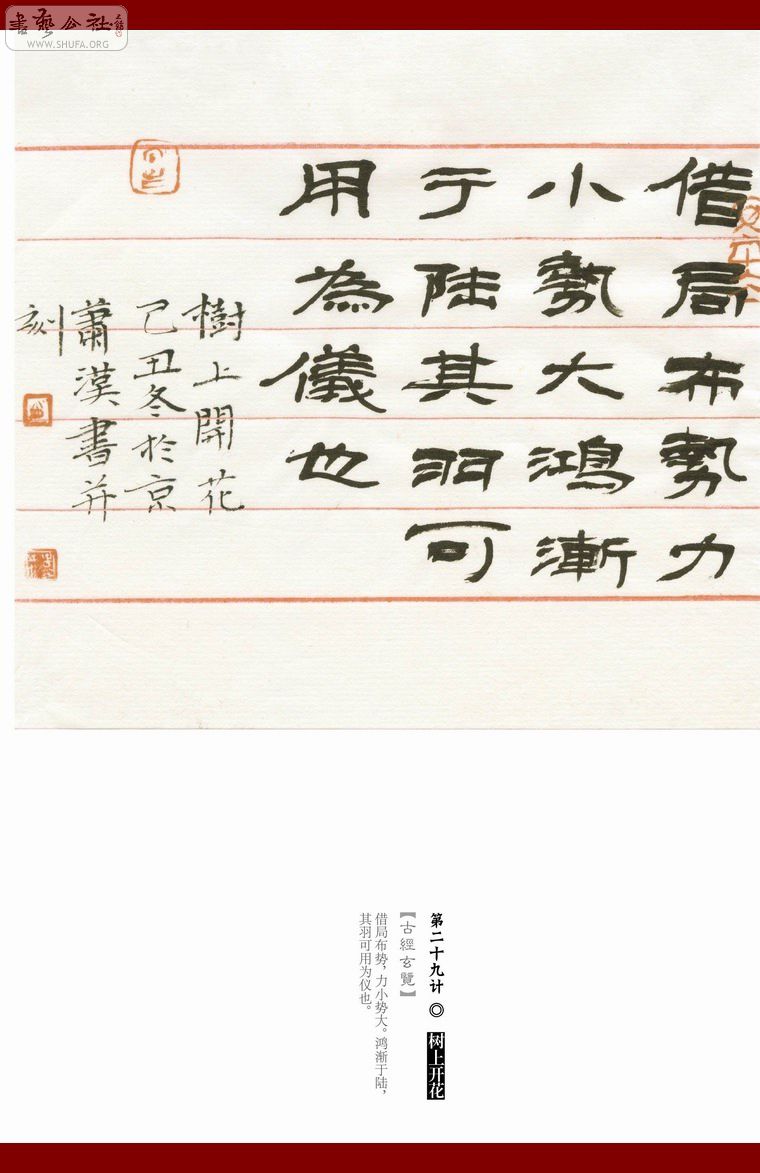 書藝公社
WWW.SHUFA.ORG
借局布勢力
小勢大鴻漸
于陸其羽可
用為儀也
樹上開花
己丑冬於京
蕭漢書并
刻
第二十九计 ◎ 树上开花
【古經玄覽】
借局布势，力小势大。鸿渐于陆，
其羽可用为仪也。